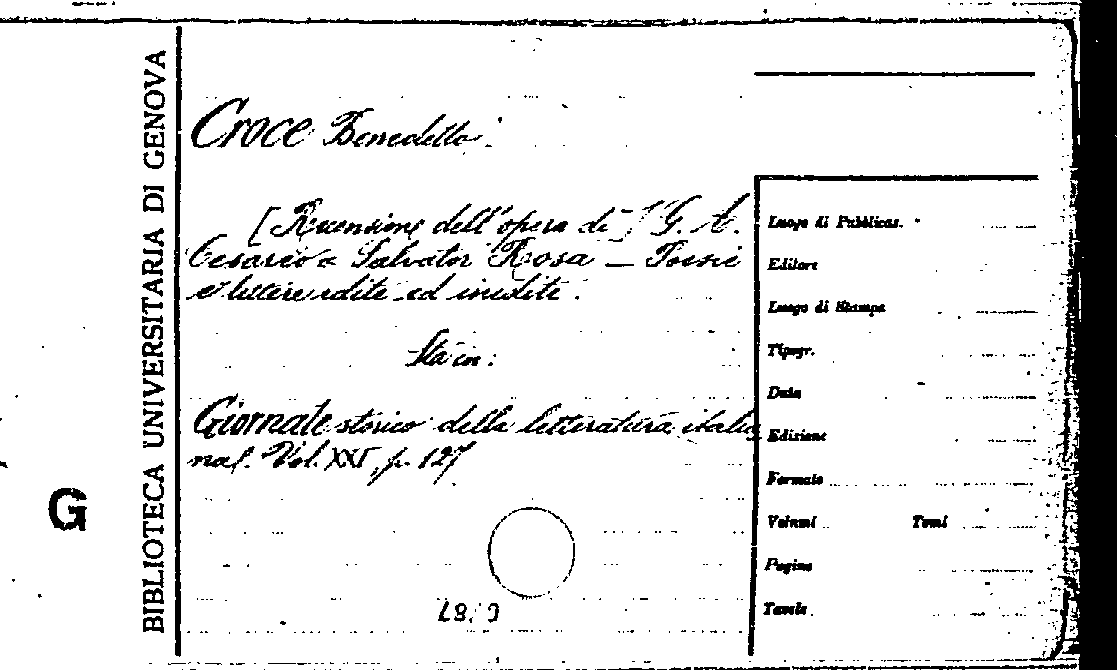 BIBLIOTECA UNIVERSITARIA DI GENOVA
G
Croce Benedetto.
[Recensione dell'opera di] G. A.
Cesareo a Salvator Rosa — Poesie
e lettere edite ed inedite.
Sta in:
Giornale storico della letteratura italia
na. Vol. XXI, p. 127
Luogo di Pubblicaz.
Editore
Luogo di Stampa
Tipogr.
Data
Edizione
Formato
Volumi Tomi
Pagine
Tavole